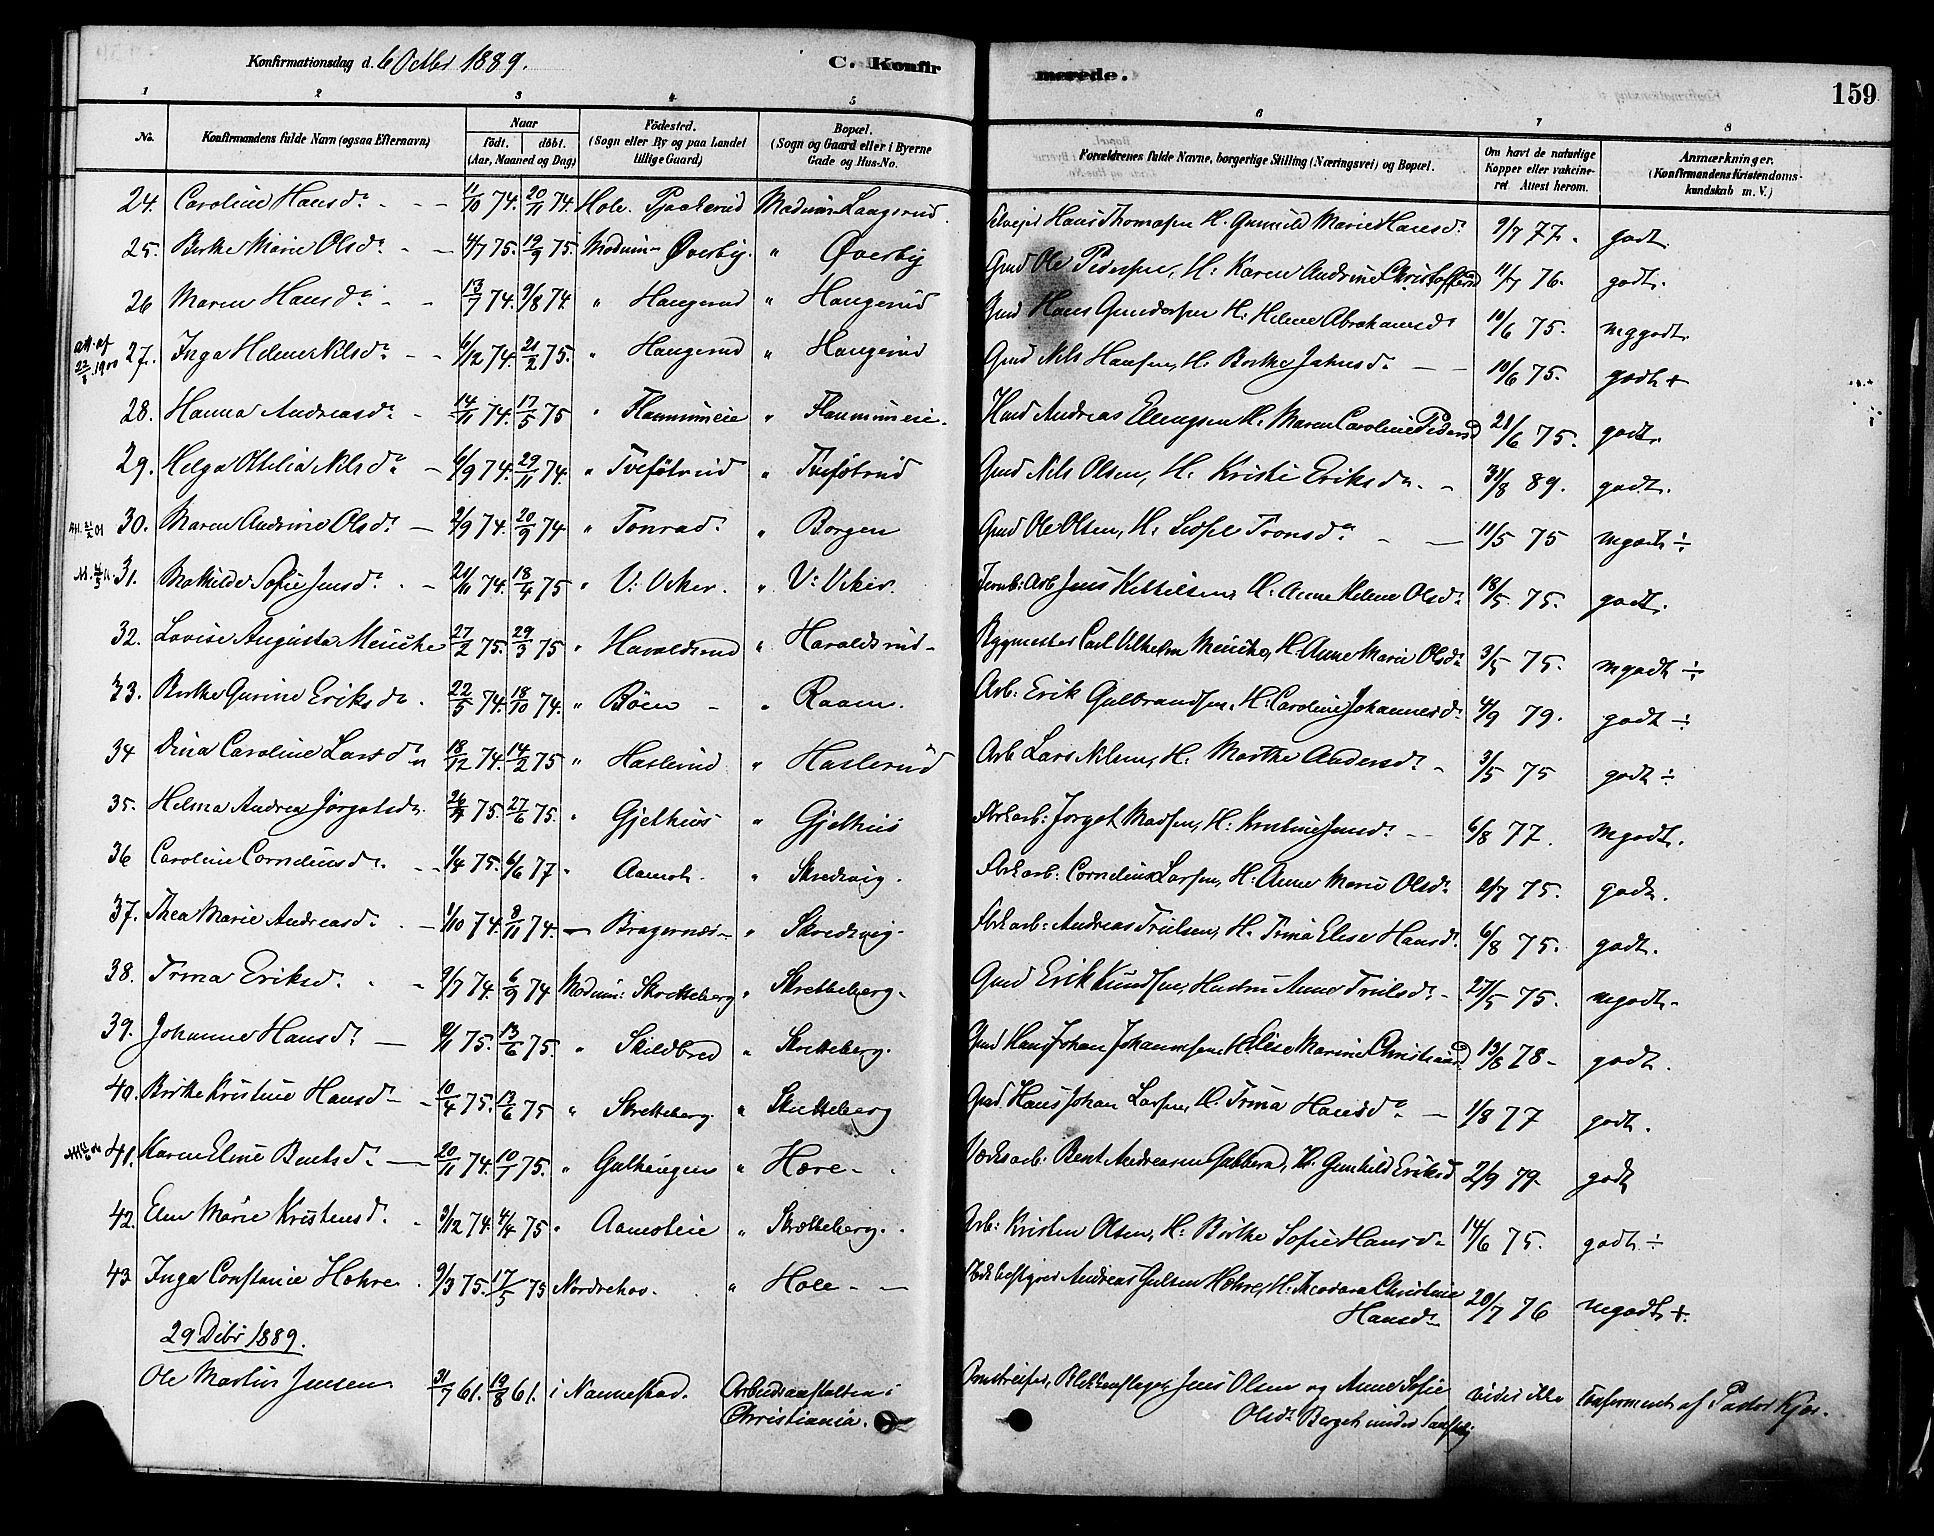 Konfirmationsdag d. 6 Octbr 1889. C. Konfirmerede. 159
1 2 3 4 5 6 7 8
No. Konfirmandens fulde Navn (ogsaa Efternavn) Naar födt. döbt. (Aar, Maaned og Dag) Födested. (Sogn eller By og paa Landet tillige Gaard) Bopæl. (Sogn og Gaard eller i Byerne Gade og Hus-No. Forældrenes fulde Navne, borgerlige Stilling (Næringsvei) og Bopæl. Om havt de naturlige Kopper eller vakcineret. Attest herom. Anmærkninger. (Konfirmandens Kristendomskundskab m. V.)
24. Caroline Hansdr. 11/10 74. 20/11 74. Hole Modum Laagerud. Hans Thomasen H. Gunnild Marie Hansdr 9/7 77. godt.
25. Berthe Marie Olsdr 4/7 75. 19/9 75. Modum Øverby. " Øverby Gmd Ole Pedersen, H: Karen Andrine Christoffersd 11/7 76. godt.
26 Maren Hansdr 13/7 74. 9/8 74. " Haugerud " Haugerud Gmd Hans Gundersen H: Helene Abrahamsdr 10/6 75. mggodt.
27. Inga Helene Nilsdr 6/12 74. 21/2 75. " Haugerud " Haugerud Gmd Nils Hansen, H. Berthe Jahnsdr 10/6 75. godt +
28. Hanna Andreasdr 14/11 74. 17/5 75 " Flannumeie " Flannumeie. Hmd Andreas Ellingsen H. Maren Caroline Pedersd 28/6 75. godt.
29. Helga Othilia Nilsdr 6/9 74. 29/11 74. " Tveføtrud " Tveføtrud Gmd Nils Olsen, H. Kristi Eriksdr 31/8 89. godt.
30. Maren Andrine Olsdr 2/9 74. 20/9 74. " " Borgen Gmd Ole Olsen, H. Tronsdr 11/5 75 mgodt ÷
31. Mathilde Sofie Jensdr 21/11 74. 18/4 75 " V: Viker. " V: Viker. Jens Kittilsen, H. Anne Helene Olsdr 18/5 75. godt.
32. Lovise Augusta Menche 27/2 75. 29/3 75 " Haraldsrud " Haraldsrud Bygmester Carl Vilhelm Menche, H. Anne Marie Olsdr 3/5 75. mgodt ÷
33. Berthe Gurine Eriksdr 22/5 74. 18/10 74. " Böen " Raaen. Arb: Erik Gulbrandsen, H: Caroline Johannesdr 4/9 79. godt ÷
34 Dina Caroline Larsdr 18/12 74. 14/2 75 " Haslerud " Haslerud Arb Lars Nilsen, H. Marthe Andersdr 3/5 75 godt ÷
35. Helma Andrea Jørgatsdr 75. 27/6 75. " Gjethus " Gjethus Jørgat Madsen, H: Kristine Jensdr 6/8 77. mgodt.
36 Caroline Corneliusdr. 1/4 75. 6/6 77 " Aamot. " Skredsvig. Cornelius Larsen, H: Anne Marie Olsdr 75. godt.
37. Thea Marie Andreasdr. 1/10 74. 8/11 74. Bragernæs " Skredsvig. Andreas Trulsen, H. Trina Elise Hansdr 6/8 75. godt.
38. Trina Eriksdr. 9/7 74. 6/9 74 Modum: Skretteberg " Skretteberg. Gmd Erik Knudsen, Hustru Anne Trulsdr 27/5 75. mgodt.
39. Johanne Hansdr 75. 13/6 75. " Skildbred " Skretteberg. Gmd Hans Johan Johannesen H. Elise Marine Christiansd 13/8 78. godt.
40. Berthe Kristine Hansdr 10/4 75. 13/6 75 " Skretteberg. " Skretteberg Gmd. Hans Johan Larsen, H. Trina Hansdr 1/8 77 godt.
41. Karen Eline Bentsdr 20/11 74. 10/1 75. " " Hære Bent Andreasen H. Gunhild Eriksd 2/9 79. godt
42. Elen Marie Kristensd. 3/12 74. 4/4 75 " Aamoteie " Skretteberg. Arb: Kristen Olsen, H. Berthe Sofie Hansdr 14/6 75. godt ÷
43 Inga Constanse Hohre. 9/3 75. 17/5 75 Norderhov. " Hole Andreas Gulsen Hohre, H. Theodora Christine Hansdr 20/7 76 mgodt +.
29 Debr 1889.
Ole Martin Jensen 31/7 61. 19/8 61. i Nannestad. Arbeidsanstalten i Christiania. Omstreifer, Blikkenslager, Jens Olsen og Anne Sofie Olsdr vides ikke Confirmert af Pastor Kjær.